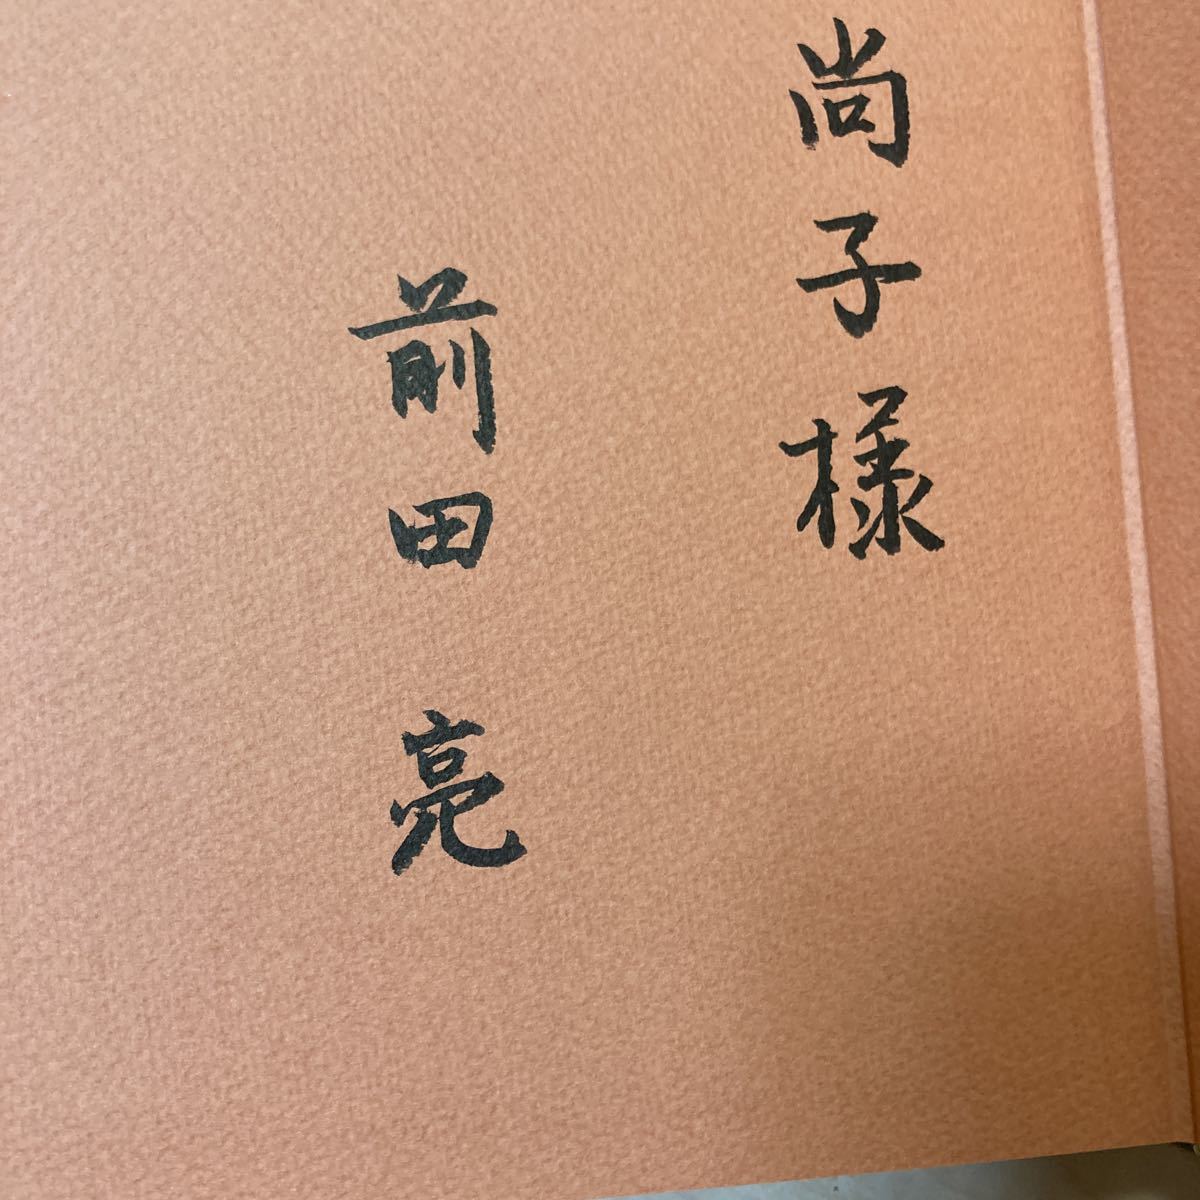 尚子様
前田亮